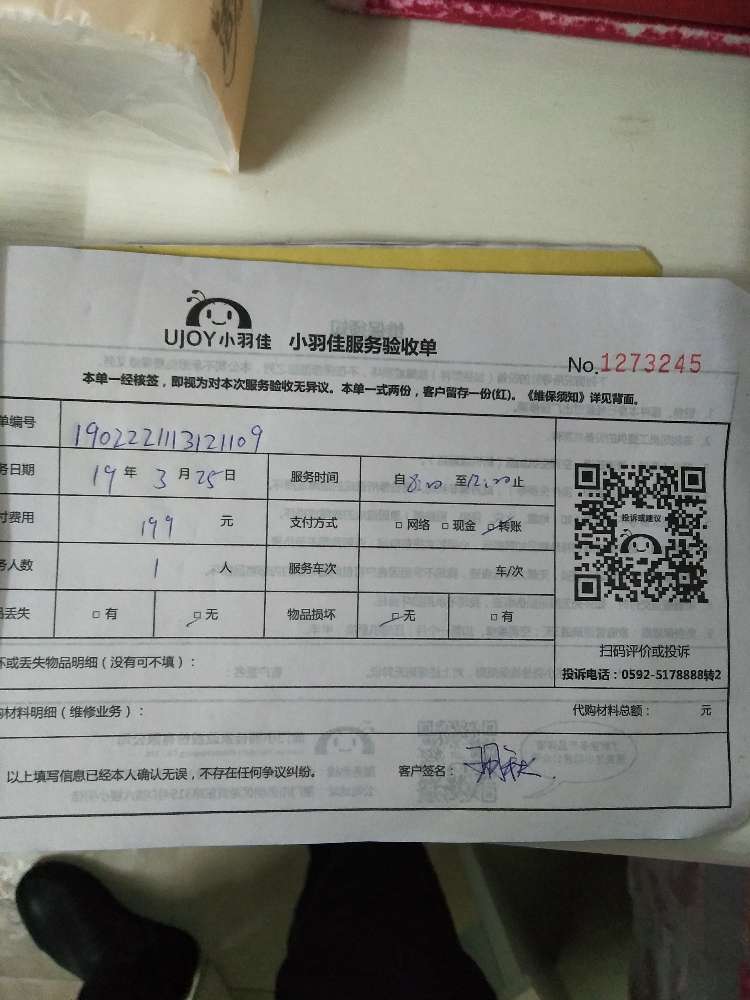 UJOY小羽佳 小羽佳服务验收单
No.1273245
本单一经核签，即视为对本次服务验收无异议。本单一式两份，客户留存一份(红)。《维保须知》详见背面。
单编号 1902221113121109
务日期 19 年 3 月 25 日 服务时间 自 8:00 至 12:00 止
付费用 199 元 支付方式 □ 网络 □ 现金 □ 转账
务人数 1 人 服务车次 车/次
品丢失 □ 有 □ 无 物品损坏 □ 无 □ 有
投诉或建议
扫码评价或投诉
投诉电话：0592-5178888转2
坏或丢失物品明细（没有可不填）：
购材料明细（维修业务）： 代购材料总额： 元
以上填写信息已经本人确认无误，不存在任何争议纠纷。 客户签名：